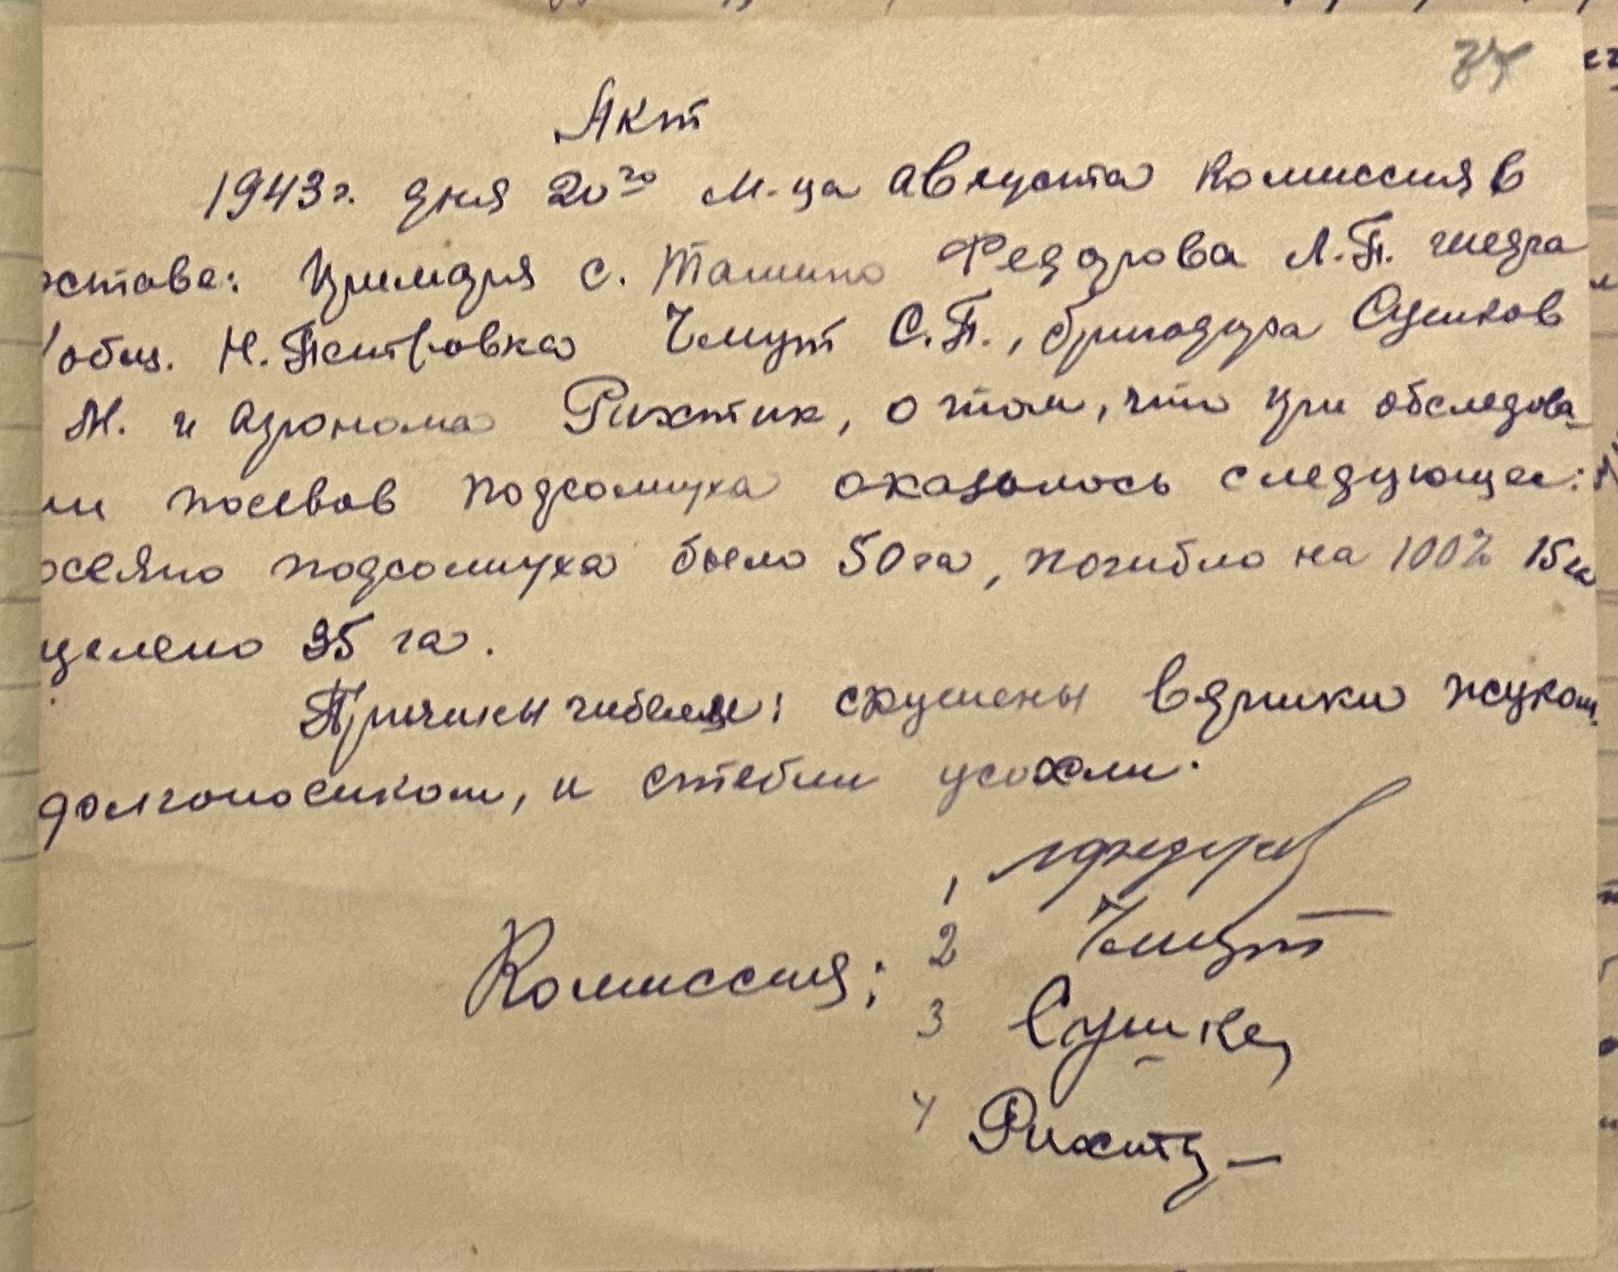 37
Акт
1943 г. дня 20го м-ца августа комиссия в
оставе: примаря с. Ташино Федорова Л.П. шефа
общ. Н. Петровка Чмут С.П., бригадира Сушков
М. и агронома Рихтик, о том, что при обследова-
ии посевов подсолнуха оказалось следующее:
осеяно подсолнуха было 50 га, погибло на 100% 15 га
уцелено 35 га.
Причины гибели: скушены вершки жуком
долгоносиком, и стебли усохли.
Комиссия:
1
2 Чмут
3 Сушко
4 Рихти